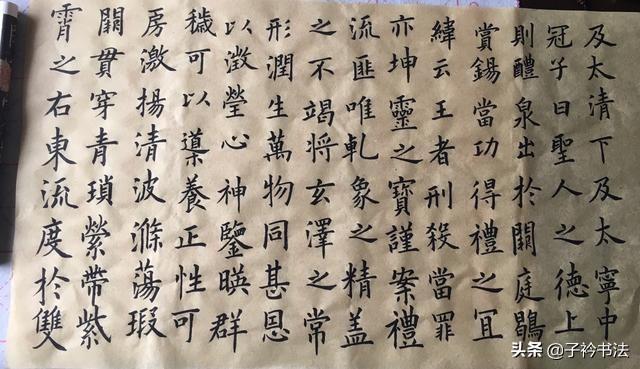 霄之右東流度於雙
闕貫穿青瑣縈帶紫
房激揚清波滌蕩瑕
穢可以導養正性可
以澂瑩心神鑒暎群
形潤生萬物同甚恩
之不竭將玄澤之常
流匪唯乹象之精盖
亦坤靈之寶謹案禮
緯云王者刑殺當罪
賞錫當功得禮之冝
則醴泉出於闕庭鶡
冠子曰聖人之德上
及太清下及太寧中
头条 @子衿书法